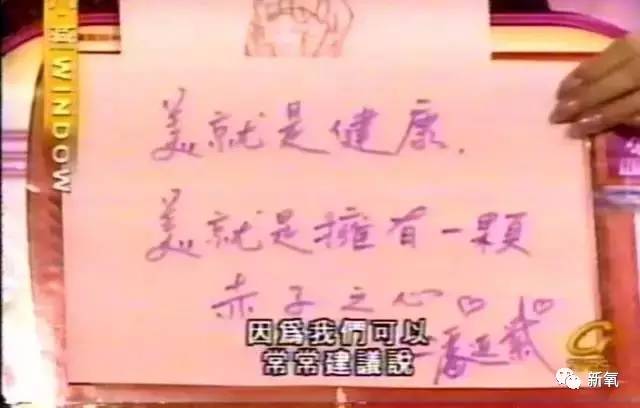 WINDOW
美就是健康.
美就是擁有一顆
赤子之心♡♡
潘迎紫
因為我們可以
常常建議說
新氧